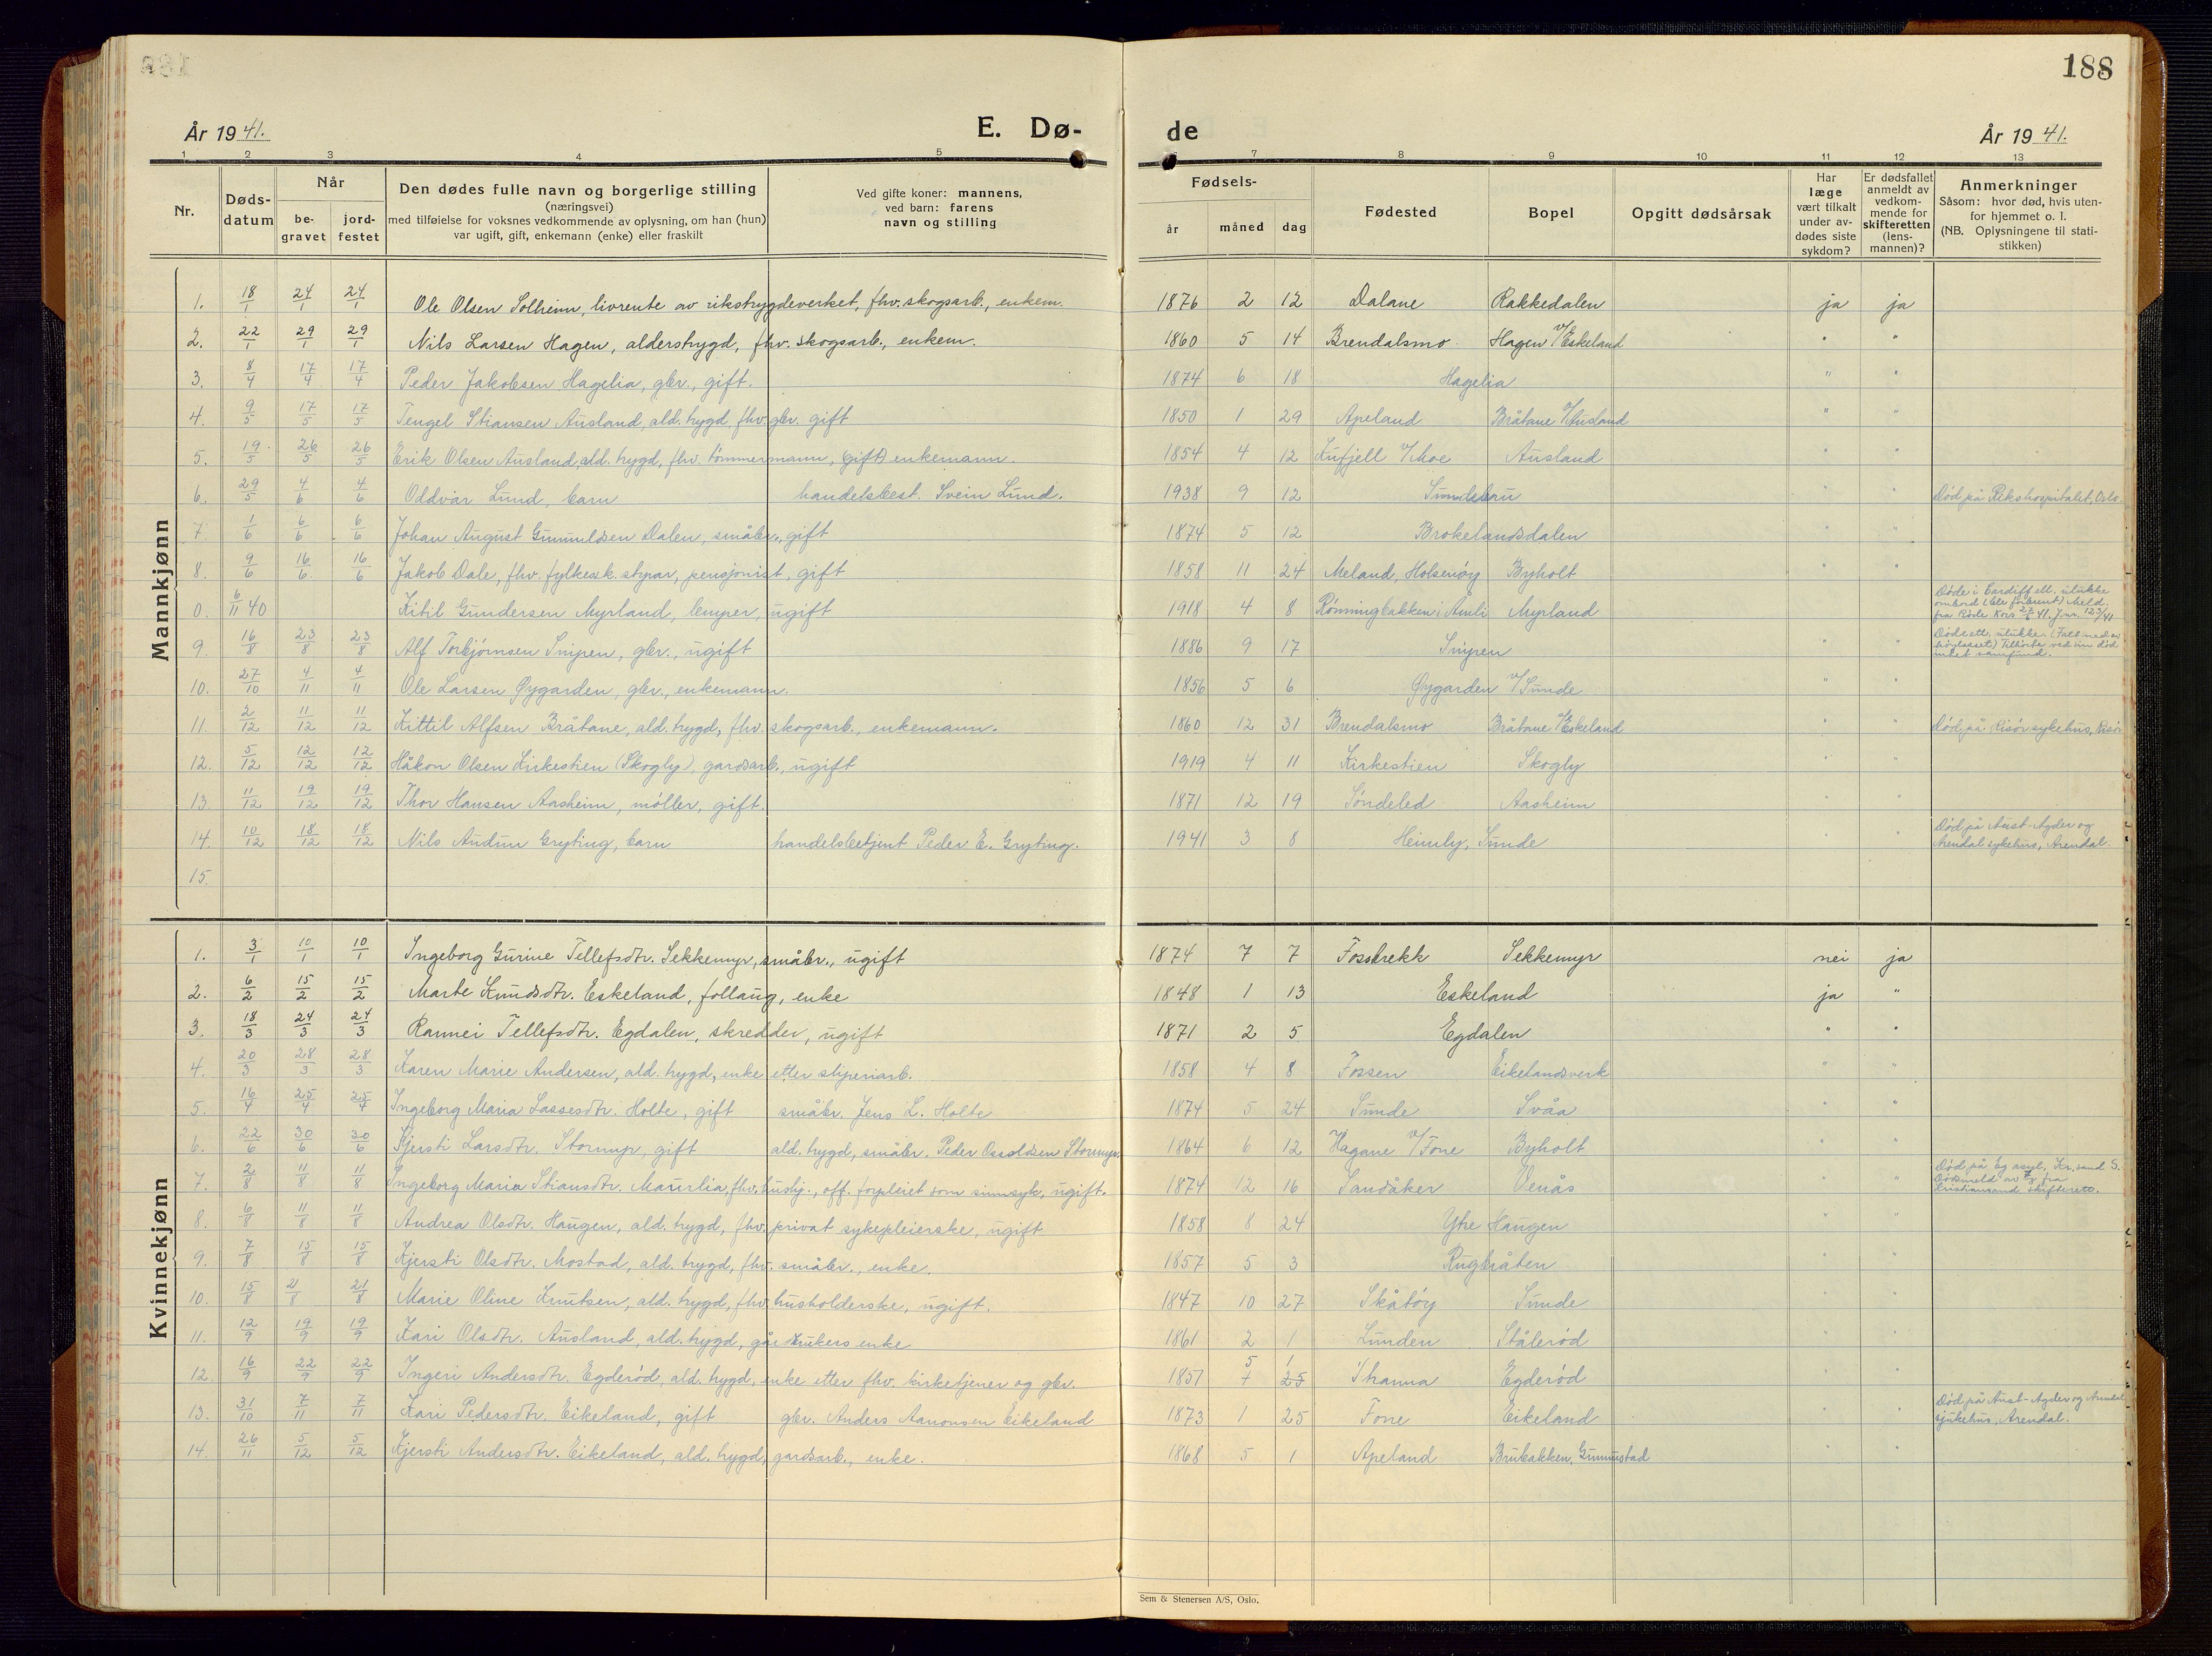 188
År 1941.
E. Dø-
de
År 1941.
1 2 3 4 5 6 7 8 9 10 11 12 13
Nr.
Døds-
datum
Når
be-
gravet
jord-
festet
Den dødes fulle navn og borgerlige stilling
(næringsvei)
med tilføielse for voksnes vedkommende av oplysning, om han (hun)
var ugift, gift, enkemann (enke) eller fraskilt
Ved gifte koner: mannens,
ved barn: farens
navn og stilling
Fødsels-
år måned dag
Fødested
Bopel
Opgitt dødsårsak
Har
læge
vært tilkalt
under av-
dødes siste
sykdom?
Er dødsfallet
anmeldt av
vedkom-
mende for
skifteretten
(lens-
mannen)?
Anmerkninger
Såsom: hvor død, hvis uten-
for hjemmet o. l.
(NB. Oplysningene til stati-
stikken)
Mannkjønn
1. 18/1 24/1 24/1 Ole Olsen Solheim, livrente av rikstrygdeverket, fhv. skogsarb., enkem. 1876 2 12 Dalane Rakkedalen ja ja
2. 22/1 29/1 29/1 Nils Larsen Hagen, alderstrygd, fhv. skogsarb., enkem. 1860 5 14 Brendalsmo Hagen v/Eskeland " "
3. 8/4 17/4 17/4 Peder Jakobsen Hagelia, gbr., gift. 1874 6 18 Hagelia " "
4. 9/5 17/5 17/5 Tengel Stiansen Ausland, ald. trygd, fhv. gbr. gift 1850 1 29 Apeland Bråtane v/Ausland " "
5. 19/5 26/5 26/5 Erik Olsen Ausland, ald. trygd, fhv. tømmermann, (gift) enkemann. 1854 4 12 Kufjell v/Moe Ausland " "
6. 29/5 4/6 4/6 Oddvar Lund, barn handelsbest. Svein Lund. 1938 9 12 Sundsbru " " Død på Rikshospitalet, Oslo.
7. 1/6 6/6 6/6 Johan August Gunnuldsen Dalen, småbr., gift 1874 5 12 Brokelandsdalen " "
8. 9/6 16/6 16/6 Jakob Dale, fhv. fylkessk. styrar, pensjonist, gift 1858 11 24 Meland, Holsenøy Byholt " "
0. 6/11 40 Kitil Gundersen Myrland, lemper, ugift 1918 4 8 Rønningbakken i Åmli Myrland
Døde i Cardiff ett. ulukke
ombord (ble forbrent) Meld.
fra Røde Kors
9. 16/8 23/8 23/8 Alf Torbjørnsen Snipen, gbr., ugift 1886 9 17 Snipen " "
Døde ett. ulukke (Fall ned av
høylasset) Tilhørte ved sin død
intet samfund.
10. 27/10 4/11 4/11 Ole Larsen Øygarden, gbr., enkemann. 1856 5 6 Øygarden v/Sunde " "
11. 2/12 11/12 11/12 Kittil Alfsen Bråtane, ald. trygd, fhv. skogsarb., enkemann. 1860 12 31 Brendalsmo Bråtane v/Eskeland " " Død på Risør sykehus, Risør
12. 5/12 12/12 12/12 Håkon Olsen Kirkestien (Skogly), gardsarb., ugift 1919 4 11 Kirkestien Skogly " "
13. 11/12 19/12 19/12 Thor Hansen Aasheim, møller, gift. 1871 12 19 Søndeled Aasheim " "
14. 10/12 18/12 18/12 Nils Audun Gryting, barn handelsbetjent Peder E. Gryting. 1941 3 8 Heimly, Sunde " "
Død på Aust-Agder og
Arendal sykehus, Arendal.
15.
Kvinnekjønn
1. 3/1 10/1 10/1 Ingeborg Gurine Tellefsdtr. Sekkemyr, småbr., ugift 1874 7 7 Fosstrekk Sekkemyr nei ja
2. 6/2 15/2 15/2 Marte Knudsdtr. Eskeland, follaug, enke 1848 1 13 Eskeland ja "
3. 18/3 24/3 24/3 Rannei Tellefsdtr. Egdalen, skredder, ugift 1871 2 5 Egdalen " "
4. 20/3 28/3 28/3 Karen Marie Andersen, ald. trygd, enke etter sliperiarb. 1858 4 8 Fossen Eikelandsverk " "
5. 16/4 25/4 25/4 Ingeborg Maria Lassesdtr. Holte, gift småbr. Jens L. Holte 1874 5 24 Sunde Svåa " "
6. 22/6 30/6 30/6 Kjersti Larsdtr. Stormyr, gift ald. trygd, småbr. Peder Ossoldsen Stormyr. 1864 6 12 Hagane v/Fone Byholt " "
7. 2/8 11/8 11/8 Ingeborg Maria Stiansdtr. Maurlia, fhv. hushj., off. forpleiet som sinnsyk, ugift. 1874 12 16 Sandåker Venås " "
Død på Eg asyl, Kr.sand S.
Dødsmeld. av fra
Kristiansand skifterett.
8. 6/8 11/8 11/8 Andrea Olsdtr. Haugen, ald. trygd, fhv. privat sykepleierske, ugift 1858 8 24 Ytre Haugen " "
9. 7/8 15/8 15/8 Kjersti Olsdtr. Mostad, ald. trygd, fhv. småbr., enke. 1857 5 3 Rugbråten " "
10. 15/8 21/8 21/8 Marie Oline Knutsen, ald. trygd, fhv. husholderske, ugift. 1847 10 27 Skåtøy Sunde " "
11. 12/9 19/9 19/9 Kari Olsdtr. Ausland, ald. trygd, gårdbrukers enke 1861 2 1 Lunden Stålerød " "
12. 16/9 22/9 22/9 Ingeri Andersdtr. Egderød, ald. trygd, enke etter fhv. kirketjener og gbr. 1857 5 1 7 25 Egderød " "
13. 31/10 7/11 7/11 Kari Pedersdtr. Eikeland, gift gbr. Anders Aanonsen Eikeland 1873 1 25 Fone Eikeland " "
Død på Aust-Agder og Arendal
sjukehus, Arendal.
14. 26/11 5/12 5/12 Kjersti Andersdtr. Eikeland, ald. trygd, gardsarb., enke. 1868 5 1 Apeland Brubakken, Gunnustad " "
Sem & Stenersen A/S, Oslo.